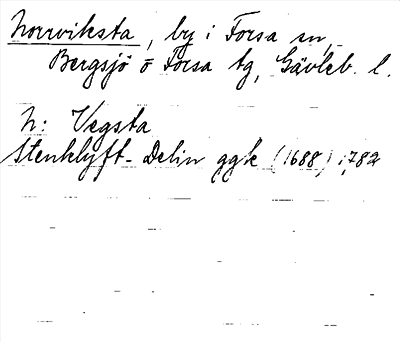 Norrviksta, by i Forsa sn,
Bergsjö o Forsa tg, Gävleb. l.
N: Vegsta
Stenklyft-Delin ggk (1688) 1782